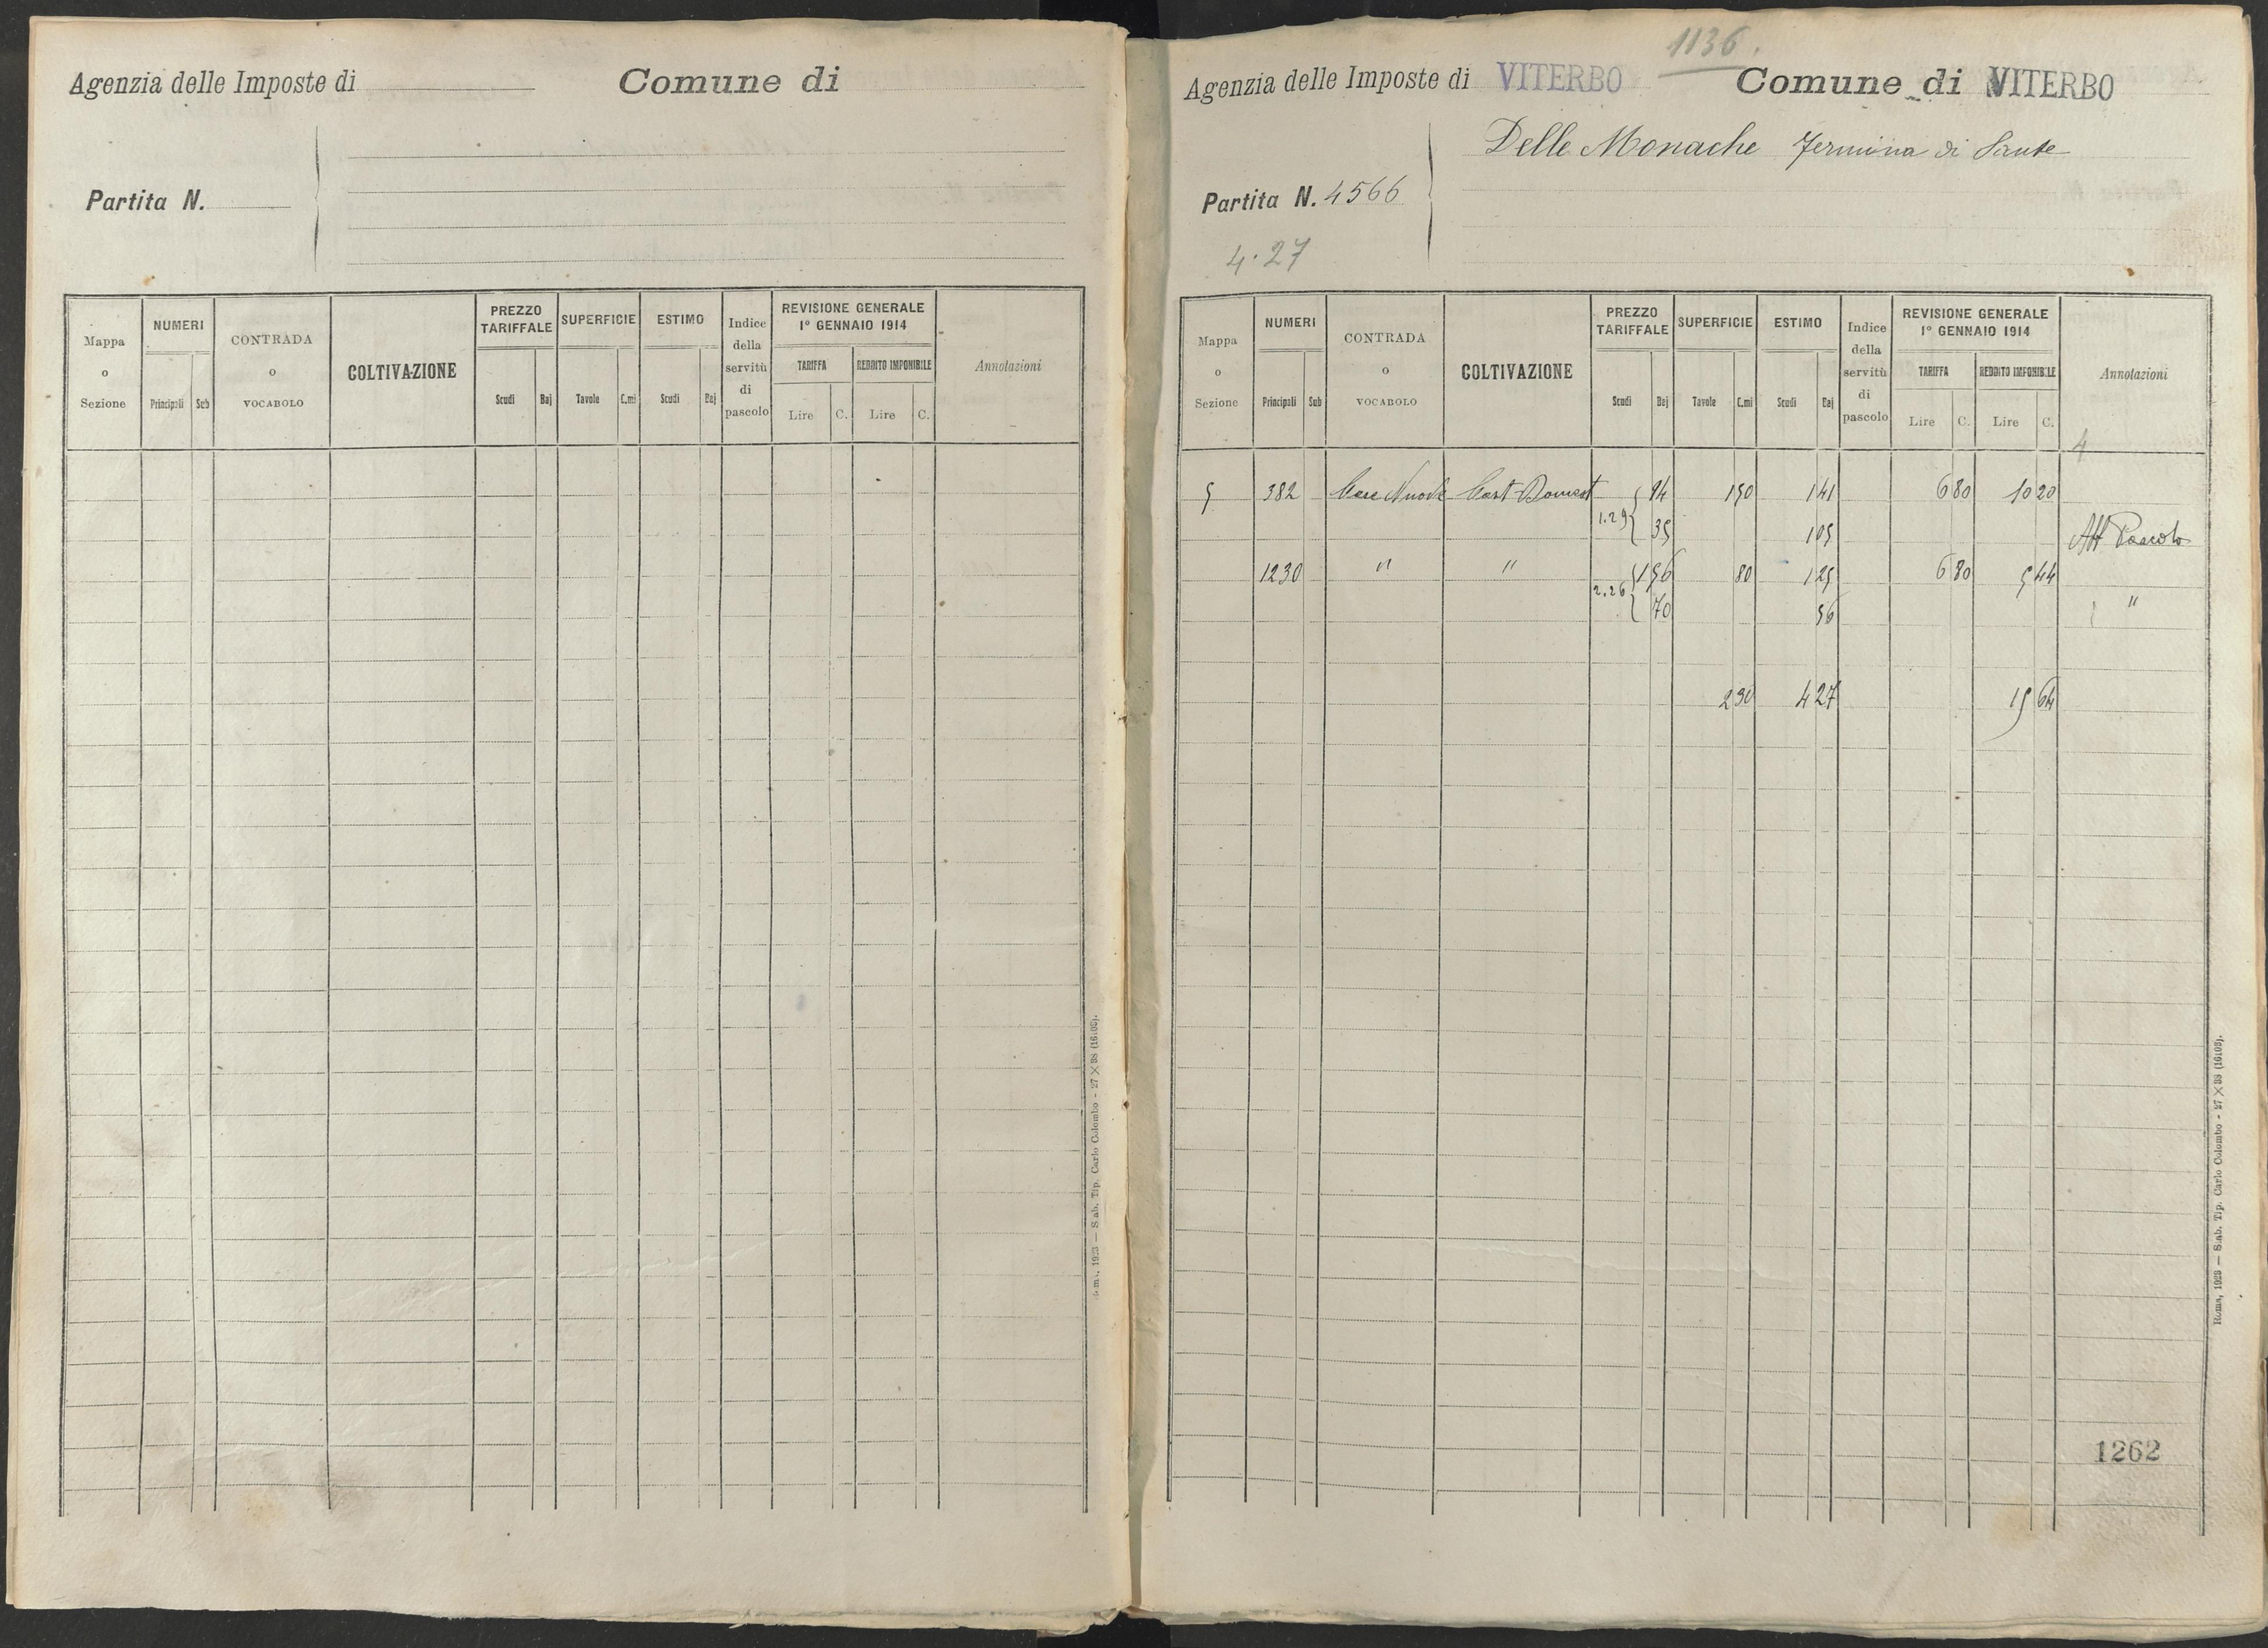 Agenzia delle Imposte di Comune di
Partita N.
Mappa o Sezione NUMERI Principali Sub CONTRADA o VOCABOLO COLTIVAZIONE PREZZO TARIFFALE Scudi Baj SUPERFICIE Tavole C.mi ESTIMO Scudi Baj Indice della servitù di pascolo REVISIONE GENERALE 1° GENNAIO 1914 TARIFFA Lire C. REDDITO IMPONIBILE Lire C. Annotazioni
Roma, 1923 — Stab. Tip. Carlo Colombo - 27 × 38 (16103).
1136.
Agenzia delle Imposte di VITERBO Comune di VITERBO
Delle Monache Fermina di Sante
Partita N. 4566
4.27
Mappa o Sezione NUMERI Principali Sub CONTRADA o VOCABOLO COLTIVAZIONE PREZZO TARIFFALE Scudi Baj SUPERFICIE Tavole C.mi ESTIMO Scudi Baj Indice della servitù di pascolo REVISIONE GENERALE 1° GENNAIO 1914 TARIFFA Lire C. REDDITO IMPONIBILE Lire C. Annotazioni
4
5 382 Case Nuove Cast Domest 94 1 50 1 41 6 80 10 20
1.29 35 1 05 Aff Pascolo
1230 " " 1 56 80 1 25 6 80 5 44
2.26 70 56 "
2 30 4 27 15 64
1262
Roma, 1923 — Stab. Tip. Carlo Colombo - 27 × 38 (16103).